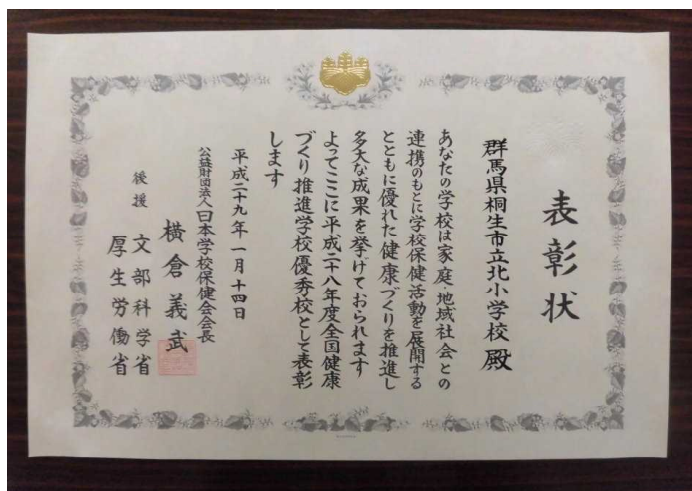 表彰状
群馬県桐生市立北小学校 殿
あなたの学校は家庭・地域社会との
連携のもとに学校保健活動を展開する
とともに優れた健康づくりを推進し
多大な成果を挙げておられます
よってここに平成二十八年度全国健康
づくり推進学校優秀校として表彰
します
平成二十九年一月十四日
公益財団法人日本学校保健会会長
横倉義武
後援 文部科学省
厚生労働省